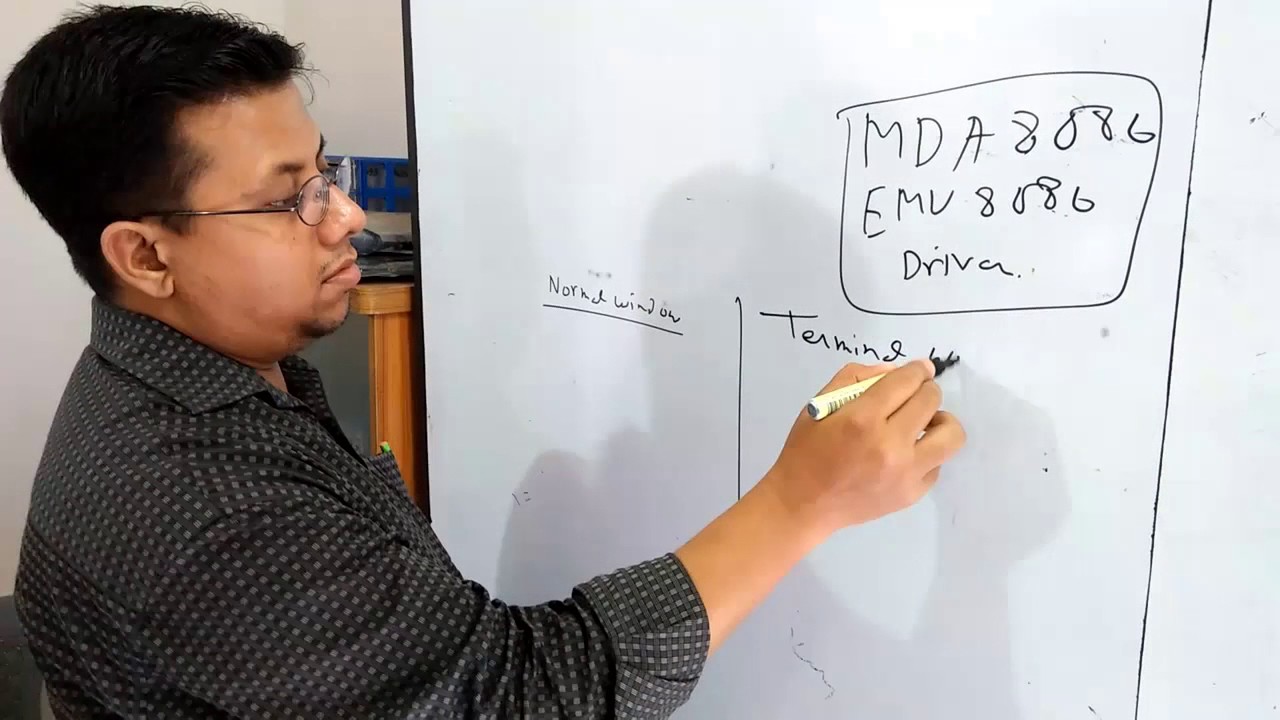 MDA 8086
EMU 8086
Driver.
Normal window
Terminal